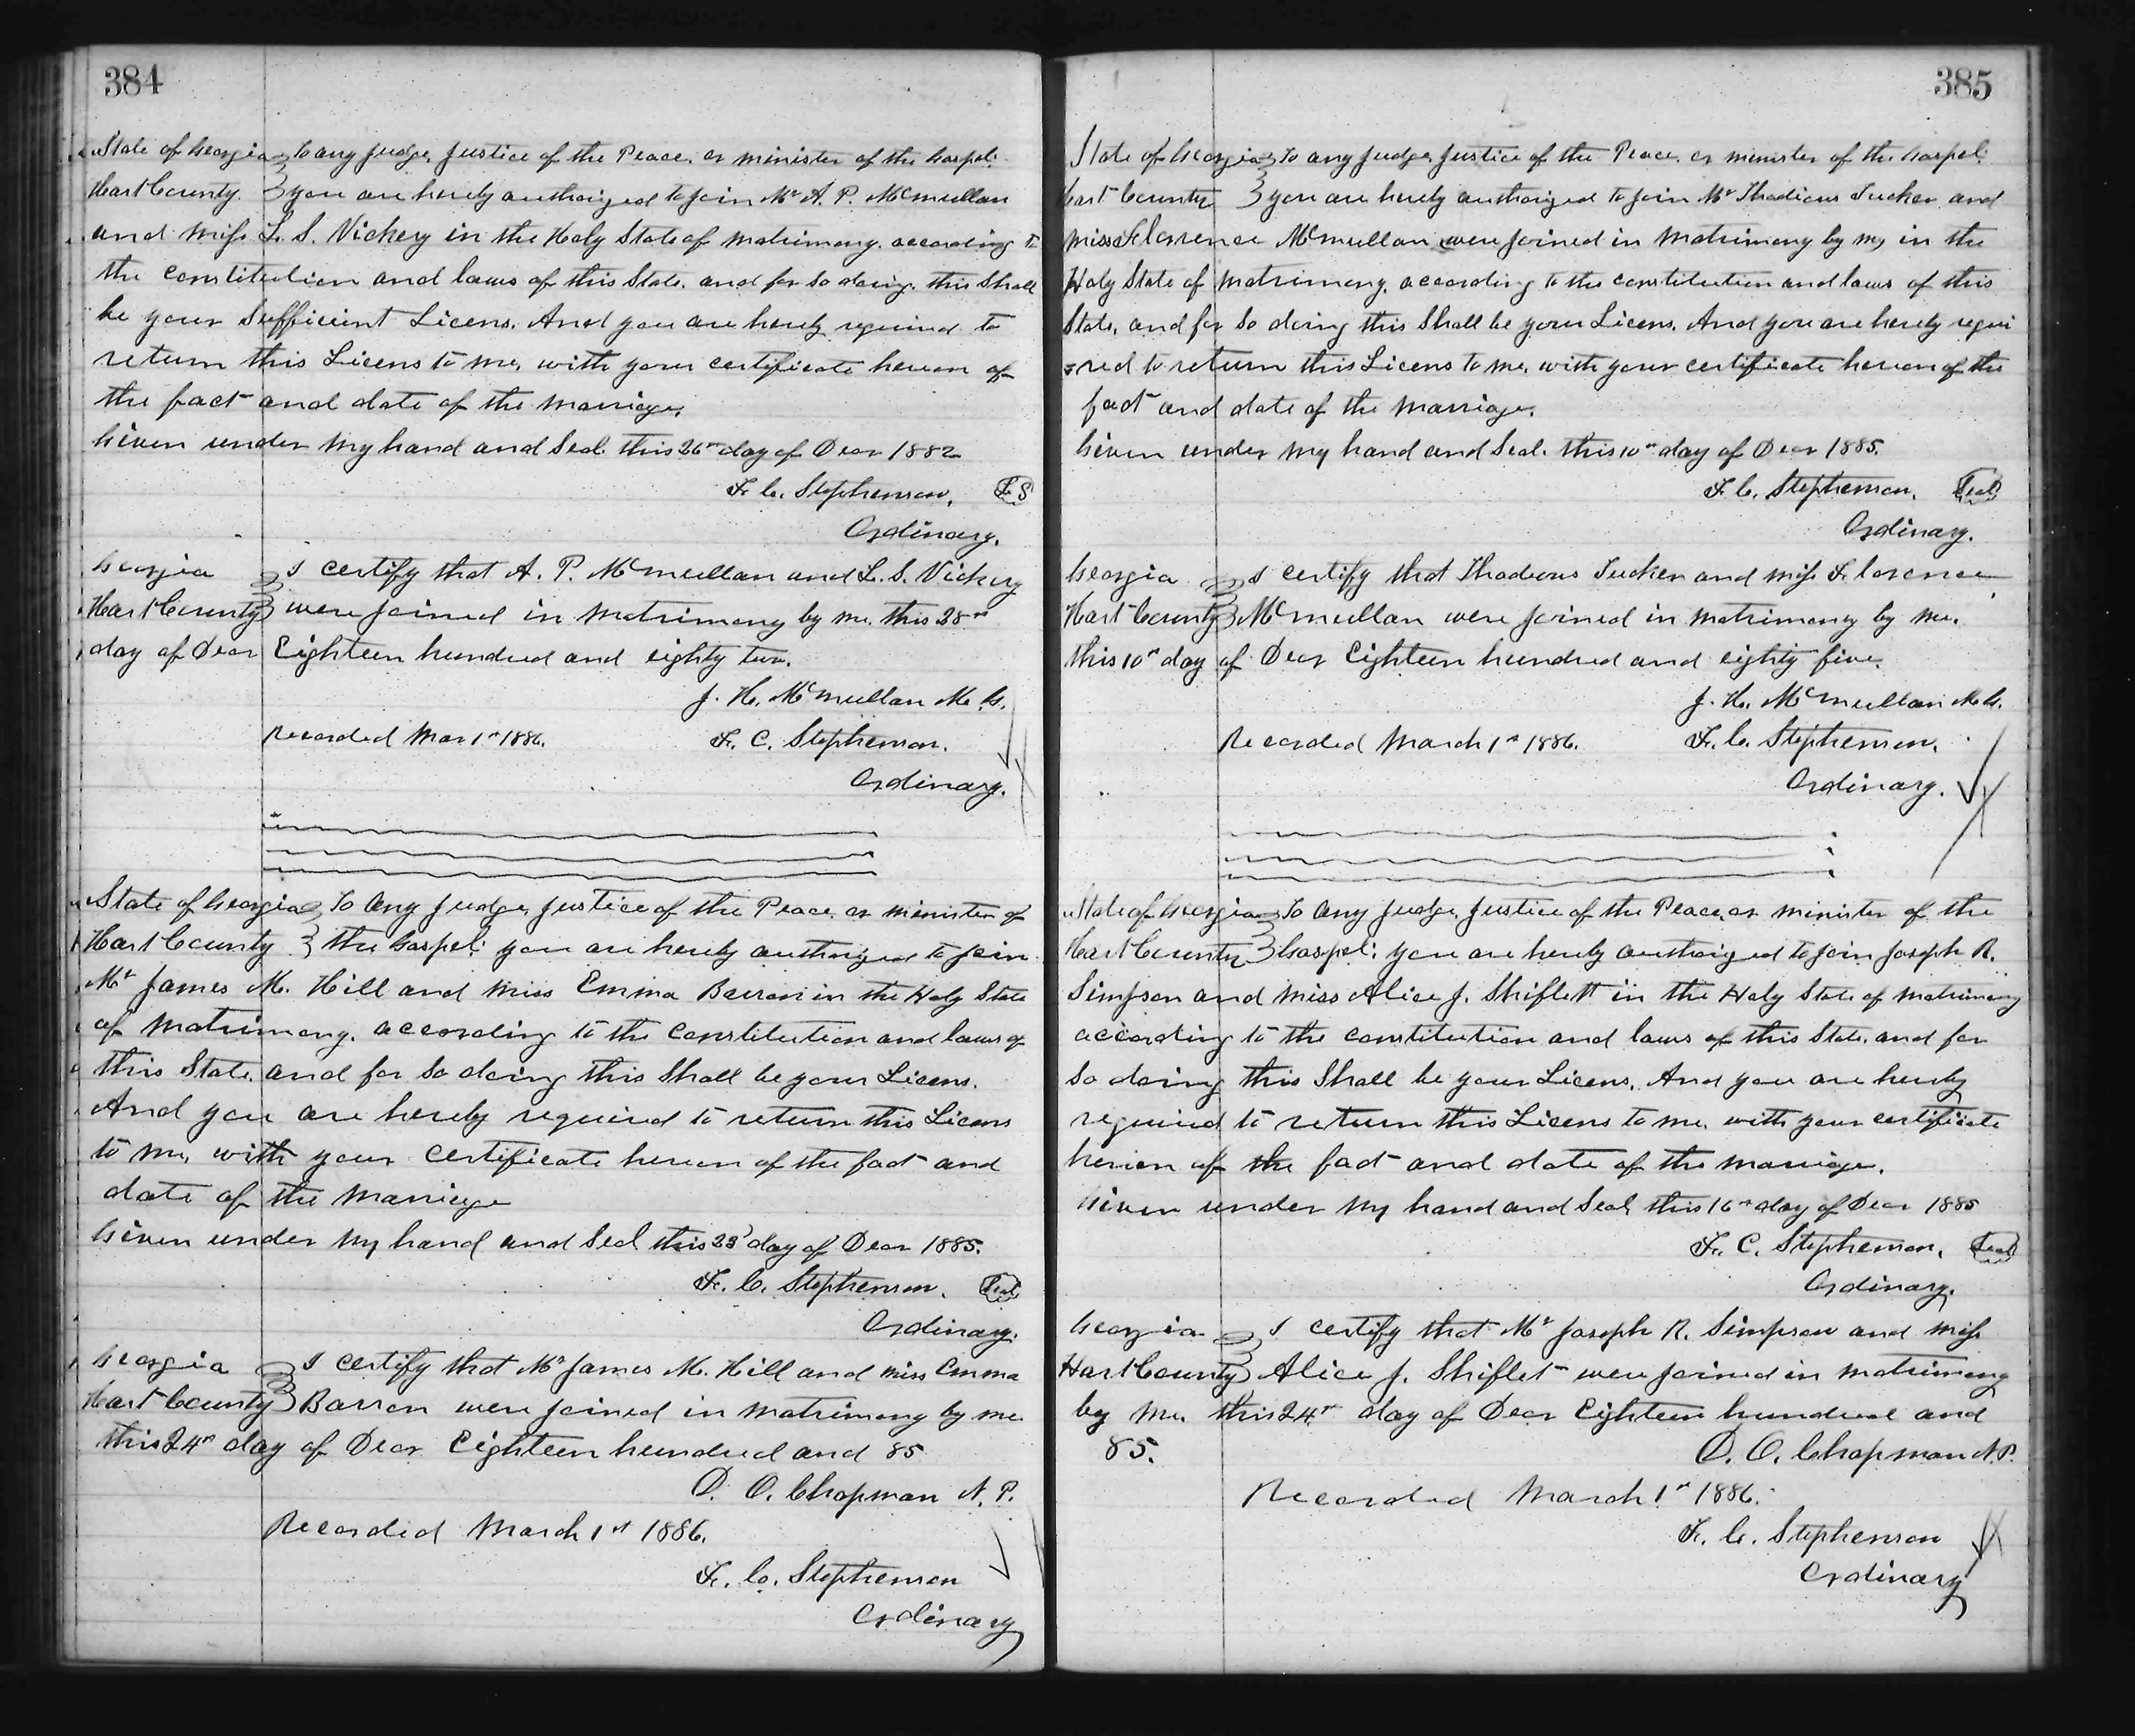 384
State of Georgia To any Judge, Justice of the Peace, or minister of the Gospel:
Hart County. you are hereby authorized to join Mr A. P. McMullan
and Miss L. S. Vickery in the Holy State of matrimony, according to
the constitution and laws of this State, and for so doing, this shall
be your Sufficient Licens. And you are hereby required to
return this Licens to me, with your certificate hereon of
the fact and date of the marriage.
Given under my hand and Seal this 26th day of Decr 1882
F. C. Stephenson, L S
Ordinary.
Georgia I certify that A. P. McMullan and L. S. Vickery
Hart County were joined in matrimony by me, this 28th
day of Decr Eighteen hundred and eighty two.
J. H. McMullan M. G.
Recorded Mar 1st 1886. F. C. Stephenson.
Ordinary.
State of Georgia To any Judge, Justice of the Peace, or minister of
Hart County the Gospel: you are hereby authorized to join
Mr James M. Hill and Miss Emma Barron in the Holy State
of matrimony, according to the constitution and laws of
this State, and for so doing this shall be your Licens.
And you are hereby required to return this Licens
to me, with your certificate hereon of the fact and
date of the marriage
Given under my hand and Seal this 23d day of Decr 1885.
F. C. Stephenson. Seal
Ordinary.
Georgia I certify that Mr James M. Hill and Miss Emma
Hart County Barron were joined in matrimony by me
this 24th day of Decr Eighteen hundred and 85
D. O. Chapman N. P.
Recorded March 1st 1886.
F. C. Stephenson
Ordinary
385
State of Georgia To any Judge, Justice of the Peace, or minister of the Gospel:
Hart County you are hereby authorized to join Mr Thadious Tucker and
Miss Florence McMullan were joined in matrimony by me, in the
Holy State of matrimony, according to the constitution and laws of this
State, and for so doing this Shall be your Licens. And you are hereby requi
=red to return this Licens to me, with your certificate hereon of the
fact and date of the marriage.
Given under my hand and Seal. this 10th day of Decr 1885.
F. C. Stephenson. Seal
Ordinary.
Georgia I certify that Thadious Tucker and Miss Florence
Hart County McMullan were joined in matrimony by me.
this 10th day of Decr Eighteen hundred and eighty five.
J. H. McMullan M. G.
Recorded March 1st 1886. F. C. Stephenson.
Ordinary.
State of Georgia To any Judge, Justice of the Peace, or minister of the
Hart County Gospel: you are hereby authorized to join Joseph R.
Simpson and Miss Alice J. Shiflett in the Holy State of matrimony
according to the constitution and laws of this State, and for
so doing this Shall be your Licens. And you are hereby
required to return this Licens to me, with your certificate
hereon of the fact and date of the marriage.
Given under my hand and Seal this 16th day of Decr 1885
F. C. Stephenson. Seal
Ordinary.
Georgia I certify that Mr Joseph R. Simpson and Miss
Hart County Alice J. Shiflet were joined in matrimony
by me. this 24th day of Decr Eighteen hundred and
85. D. O. Chapman N.P.
Recorded March 1st 1886.
F. C. Stephenson
Ordinary